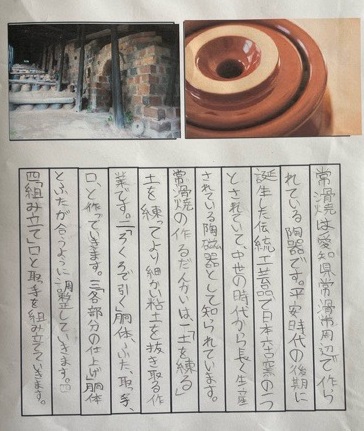 常滑焼は愛知県常滑市周辺で作ら
れている陶器です。平安時代の後期に
誕生した伝統工芸品で日本六古窯の一つ
とされていて、中世の時代から長く生産
されている陶磁器として知られています。
常滑焼の作るだんかいは、一「土を練る」
土を練ってより細かい粘土を抜き取る作
業です。二「ろくろで引く」胴体、ふた、取っ手、
口、と作っていきます。三「各部分の仕上げ」胴体
とふたが合うように調整していきます。
四「組み立て」口と取手を組み立ていきます。